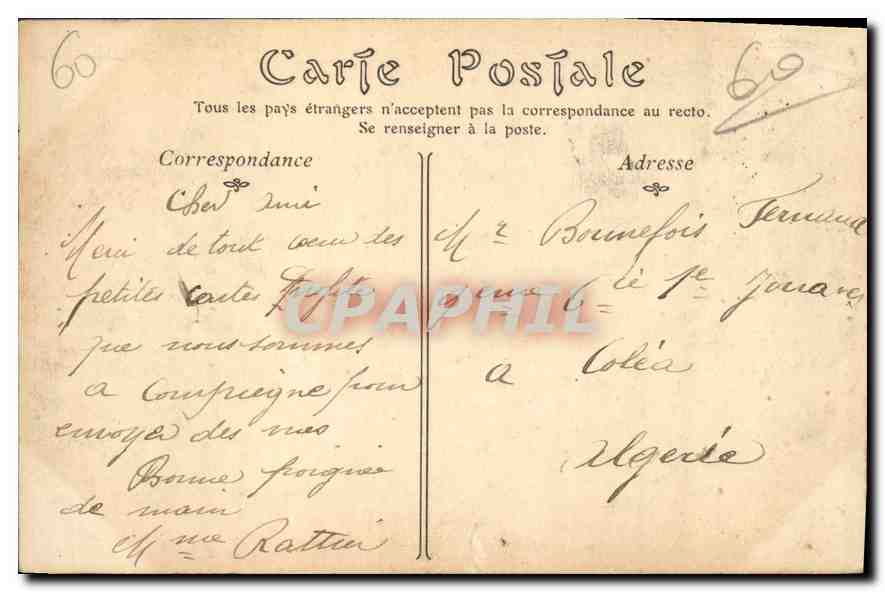 60
60
Carte Postale
Tous les pays étrangers n'acceptent pas la correspondance au recto.
Se renseigner à la poste.
Correspondance
Cher Ami
Merci de tout coeur des
petites cartes Profite
que nous sommes
a Compiegne pour
envoyer des vues
Bonne poignée
de main
Mme Rattier
Adresse
Mr Bonnefois Fernand
9eme Cie 1e Zouaves
a Coléa
Algerie
CPAPHIL